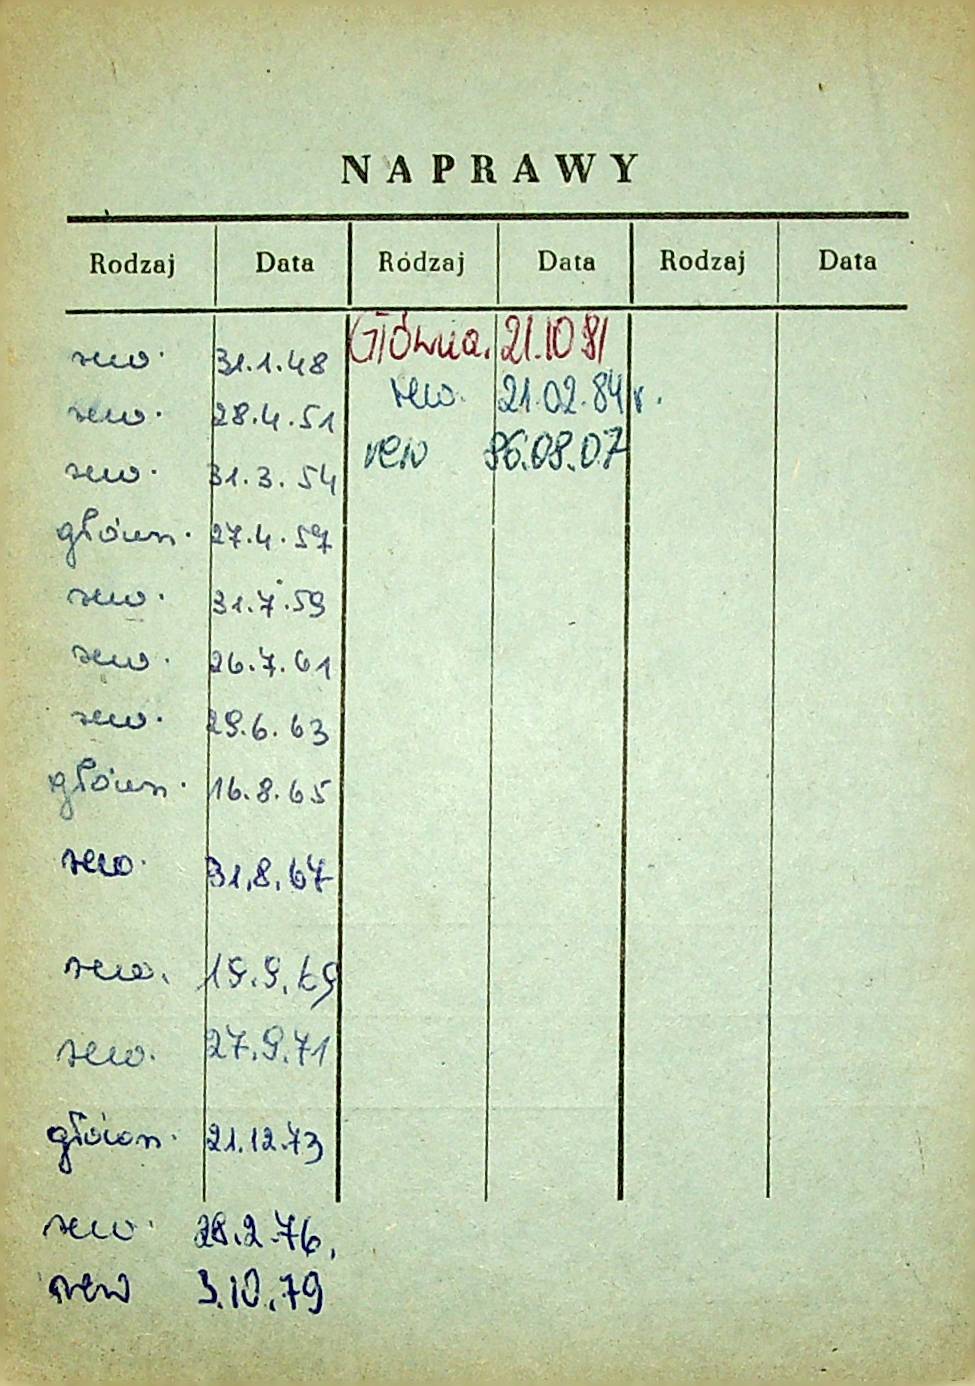 NAPRAWY
Rodzaj Data Rodzaj Data Rodzaj Data
rew. 31.1.48 Główna. 21.10 81
rew. 28.4.51 rew. 21.02.84 r.
rew. 31.3.54 rew 86.08.07
główn. 27.4.57
rew. 31.7.59
rew. 26.7.61
rew. 29.6.63
główn. 16.8.65
rew. 31.8.67
rew. 19.9.69
rew. 27.9.71
główn. 21.12.73
rew. 28.2.76.
rew 3.10.79